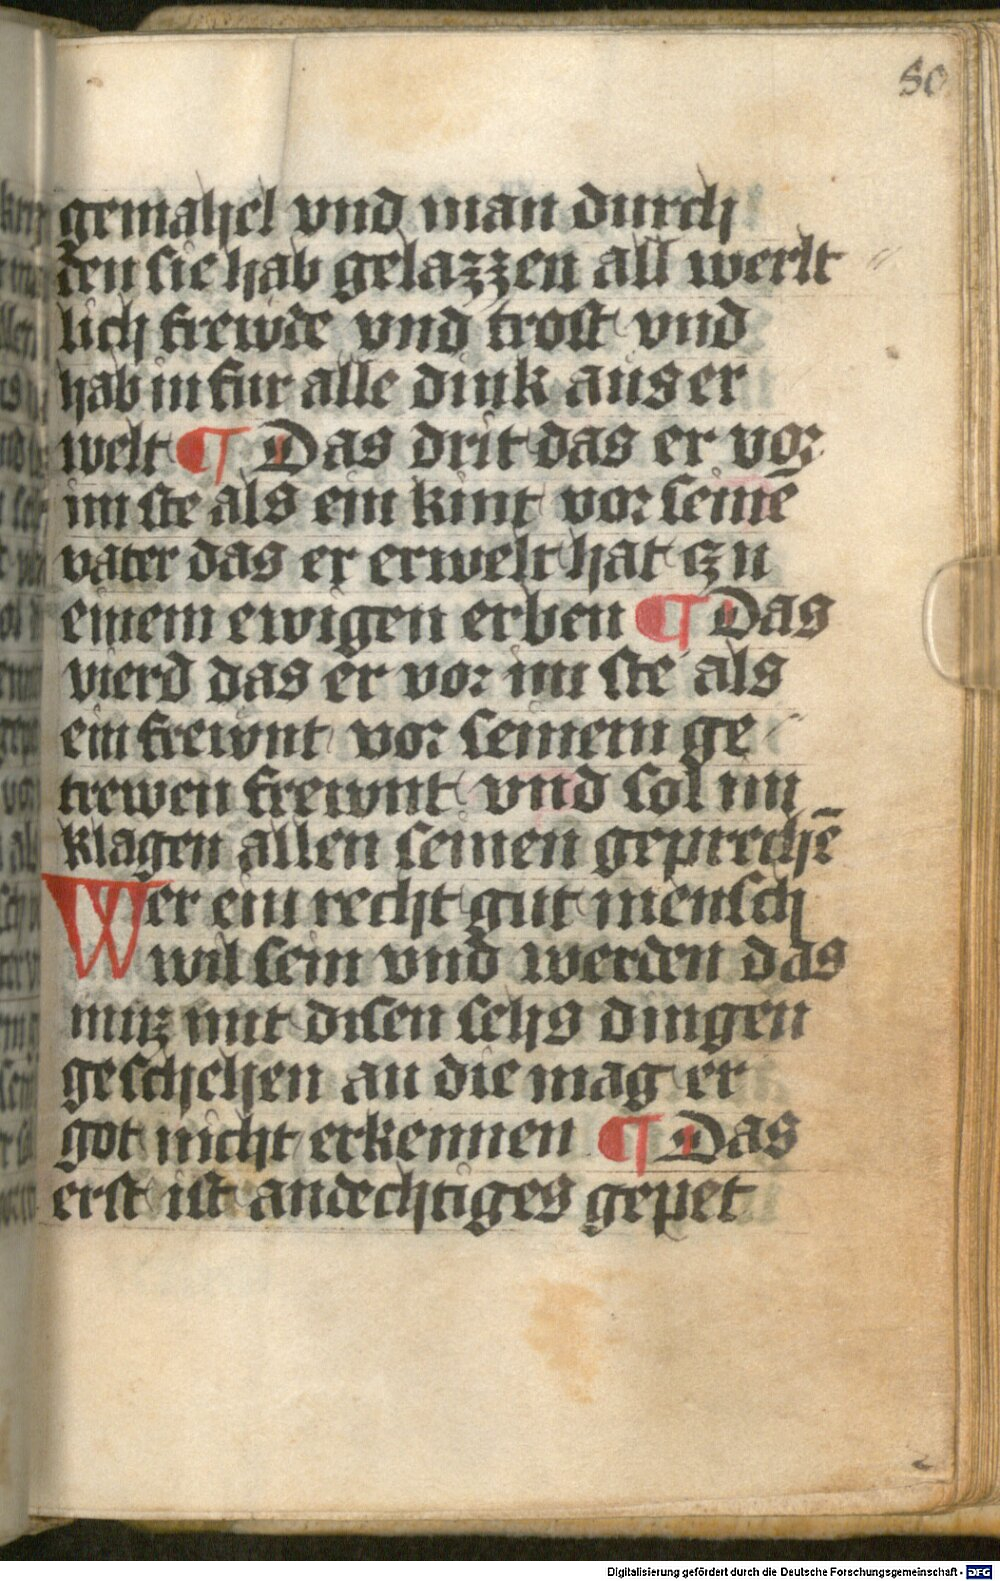 80
gemahel vnd man durch
den sie hab gelazzen all werlt
lich frewde vnd trost vnd
hab in fur alle dink auser
welt ¶ Das drit das er vor
im ste als ein kint vor seinē
vater das er erwelt hat czu
einem ewigen erben ¶ Das
vierd das er vor im ste als
ein frewnt vor seinem ge
trewen frewnt vnd sol im
klagen allen seinen geprechē
Wer ein recht gut mensch
wil sein vnd werden das
muz mit disen sehs dingen
geschehen an die mag er
got nicht erkennen ¶ Das
erst ist andechtiges gepet
Digitalisierung gefördert durch die Deutsche Forschungsgemeinschaft - DFG